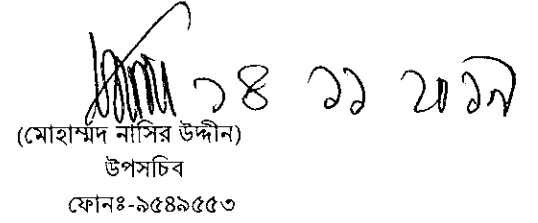 ১৪ ১১ ২০১৭
(মোহাম্মদ নাসির উদ্দীন)
উপসচিব
ফোনঃ-৯৫৪৯৫৫৩